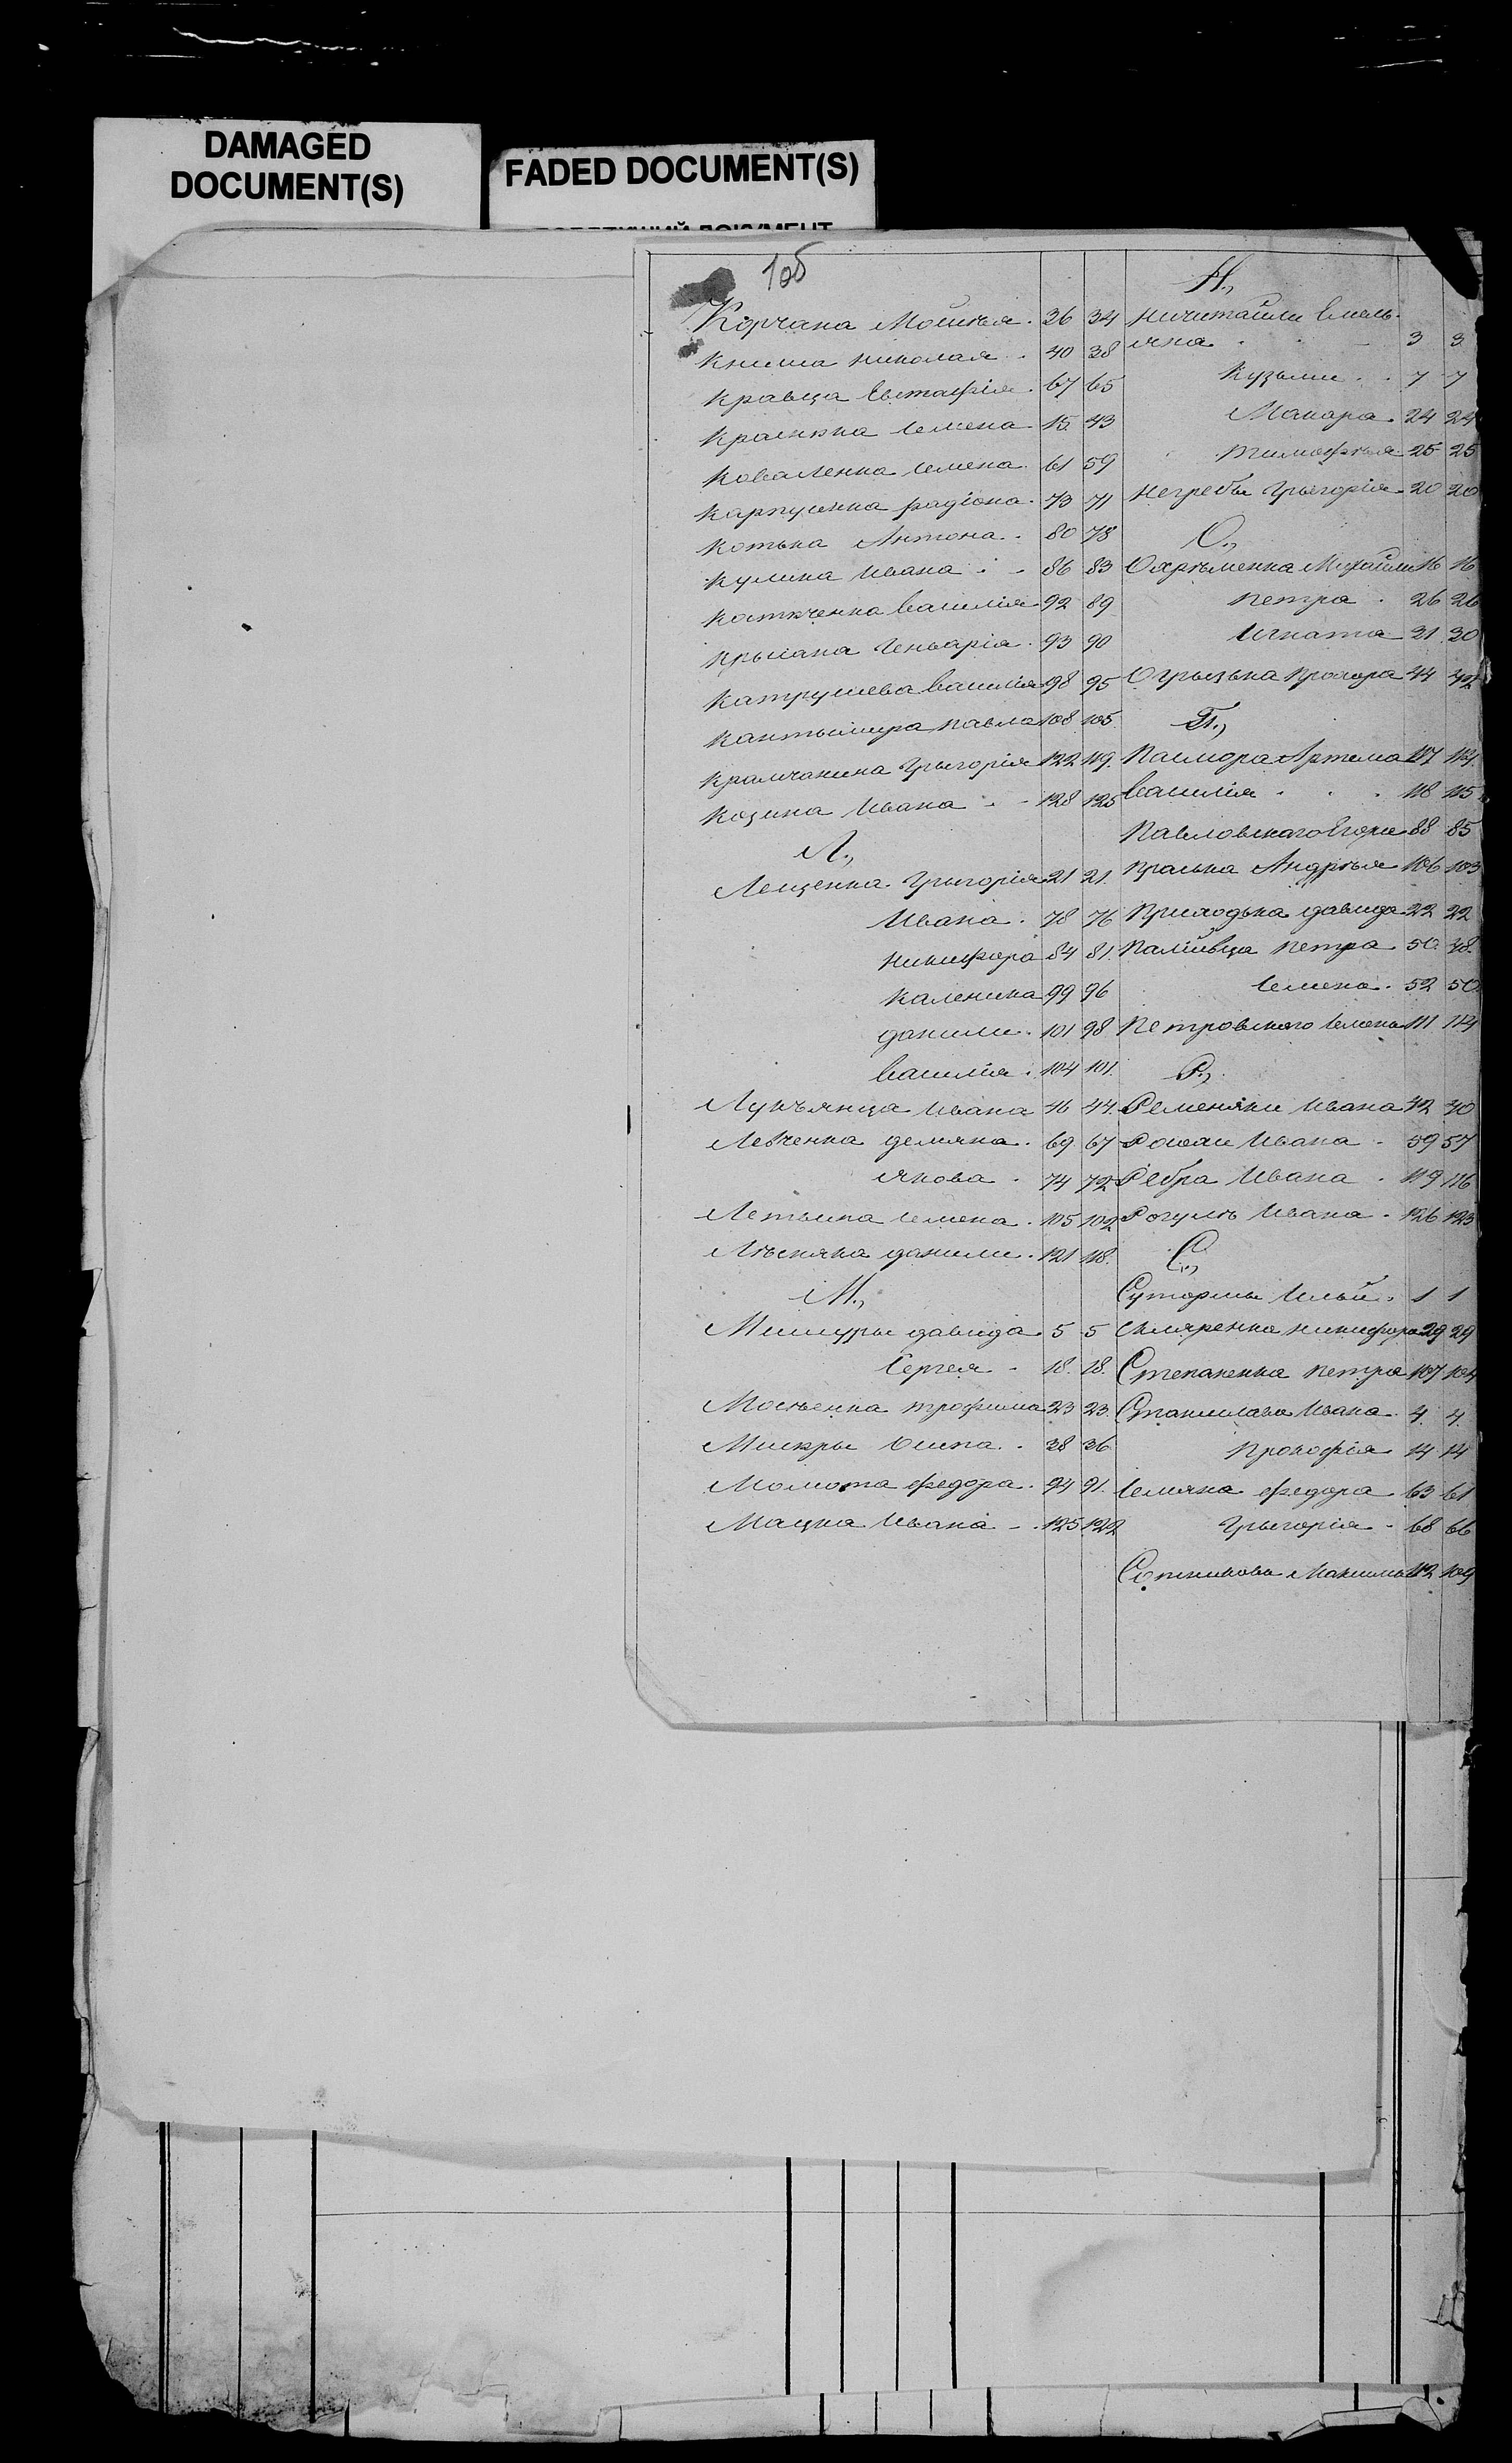 DAMAGED
DOCUMENT(S)
FADED DOCUMENT(S)
1об
Корчака Моисѣя. 36 34
Книша Николая. 40 38
Кравца Евстафія. 67 65
Семена 45 43
Коваленка Семена. 61 59
Карпусенка Радіона. 73 71
Котька Антона. 80 78
Кулика Ивана. 86 83
Костюченка Василія 92 89
Геньварія. 93 90
Катрушева Василія 98 95
Кантымира Павла 108 105
Крамчанина Грыгорія 122 119.
Козина Ивана. 128 125
Л.,
Лещенка Грыгорія 21 21.
Ивана. 78 76
Никифора 84 81.
Каленика 99 96
Данила. 101 98
Василія. 104 101.
Лукъянца Ивана 46 44.
Левченка Демяна. 69. 67
Якова. 74 72
Семена. 105 102
Лѣсняка Данила. 121 118.
М.,
Мишуры Давида 5 5
Сергея 18. 18.
Мосѣенка Трофима 23 23.
Мискры Осипа. 38 36
Момота Федора. 94 91.
Мацка Ивана. 125 122
Н.,
Ничитайли Емель-
яна 3 3
Кузьми. 7 7
Макара. 24 24
Тимофѣя 25 25
Негребы Грыгорія 20 20
О.,
Охрѣменка Михайли 16 16
Петра. 26 26
Игната 31 30
Огрызька Прохора 44 42
П.,
Артема 117 114.
Василія 118 115
Павловского Егора 88 85
Праська Андрѣя 106 103
Приходька Давида 22 22
Палійвца Петра 50. 48.
Семена. 52 50
Петровского Семена 111 114
Р.,
Ременяки Ивана 42 40
Ивана. 59 57
Ребра Ивана. 119 116
Рогулѣ Ивана. 126 123
С.,
Сутормы Ильи. 1 1
Скляренка Никифора 29 29
Степаненка Петра 107 104
Станислава Ивана. 4. 4.
Прокофія. 14 14
Семяна Федора. 63 61
Грыгорія. 68 66
Сотникова Максима 112 109